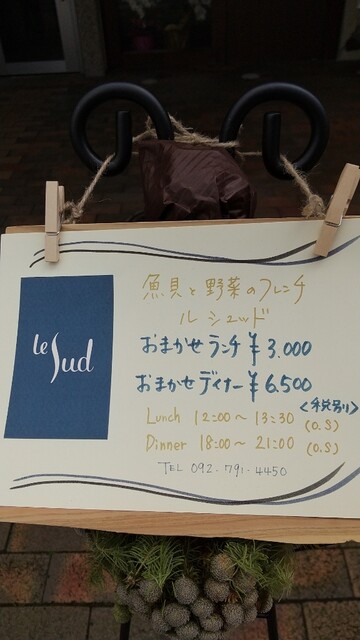 le Sud
魚貝と野菜のフレンチ
ル シュッド
おまかせランチ ¥3.000
おまかせディナー ¥6.500
<税別>
Lunch 12:00～13:30 (O.S)
Dinner 18:00～21:00 (O.S)
TEL 092.791.4450